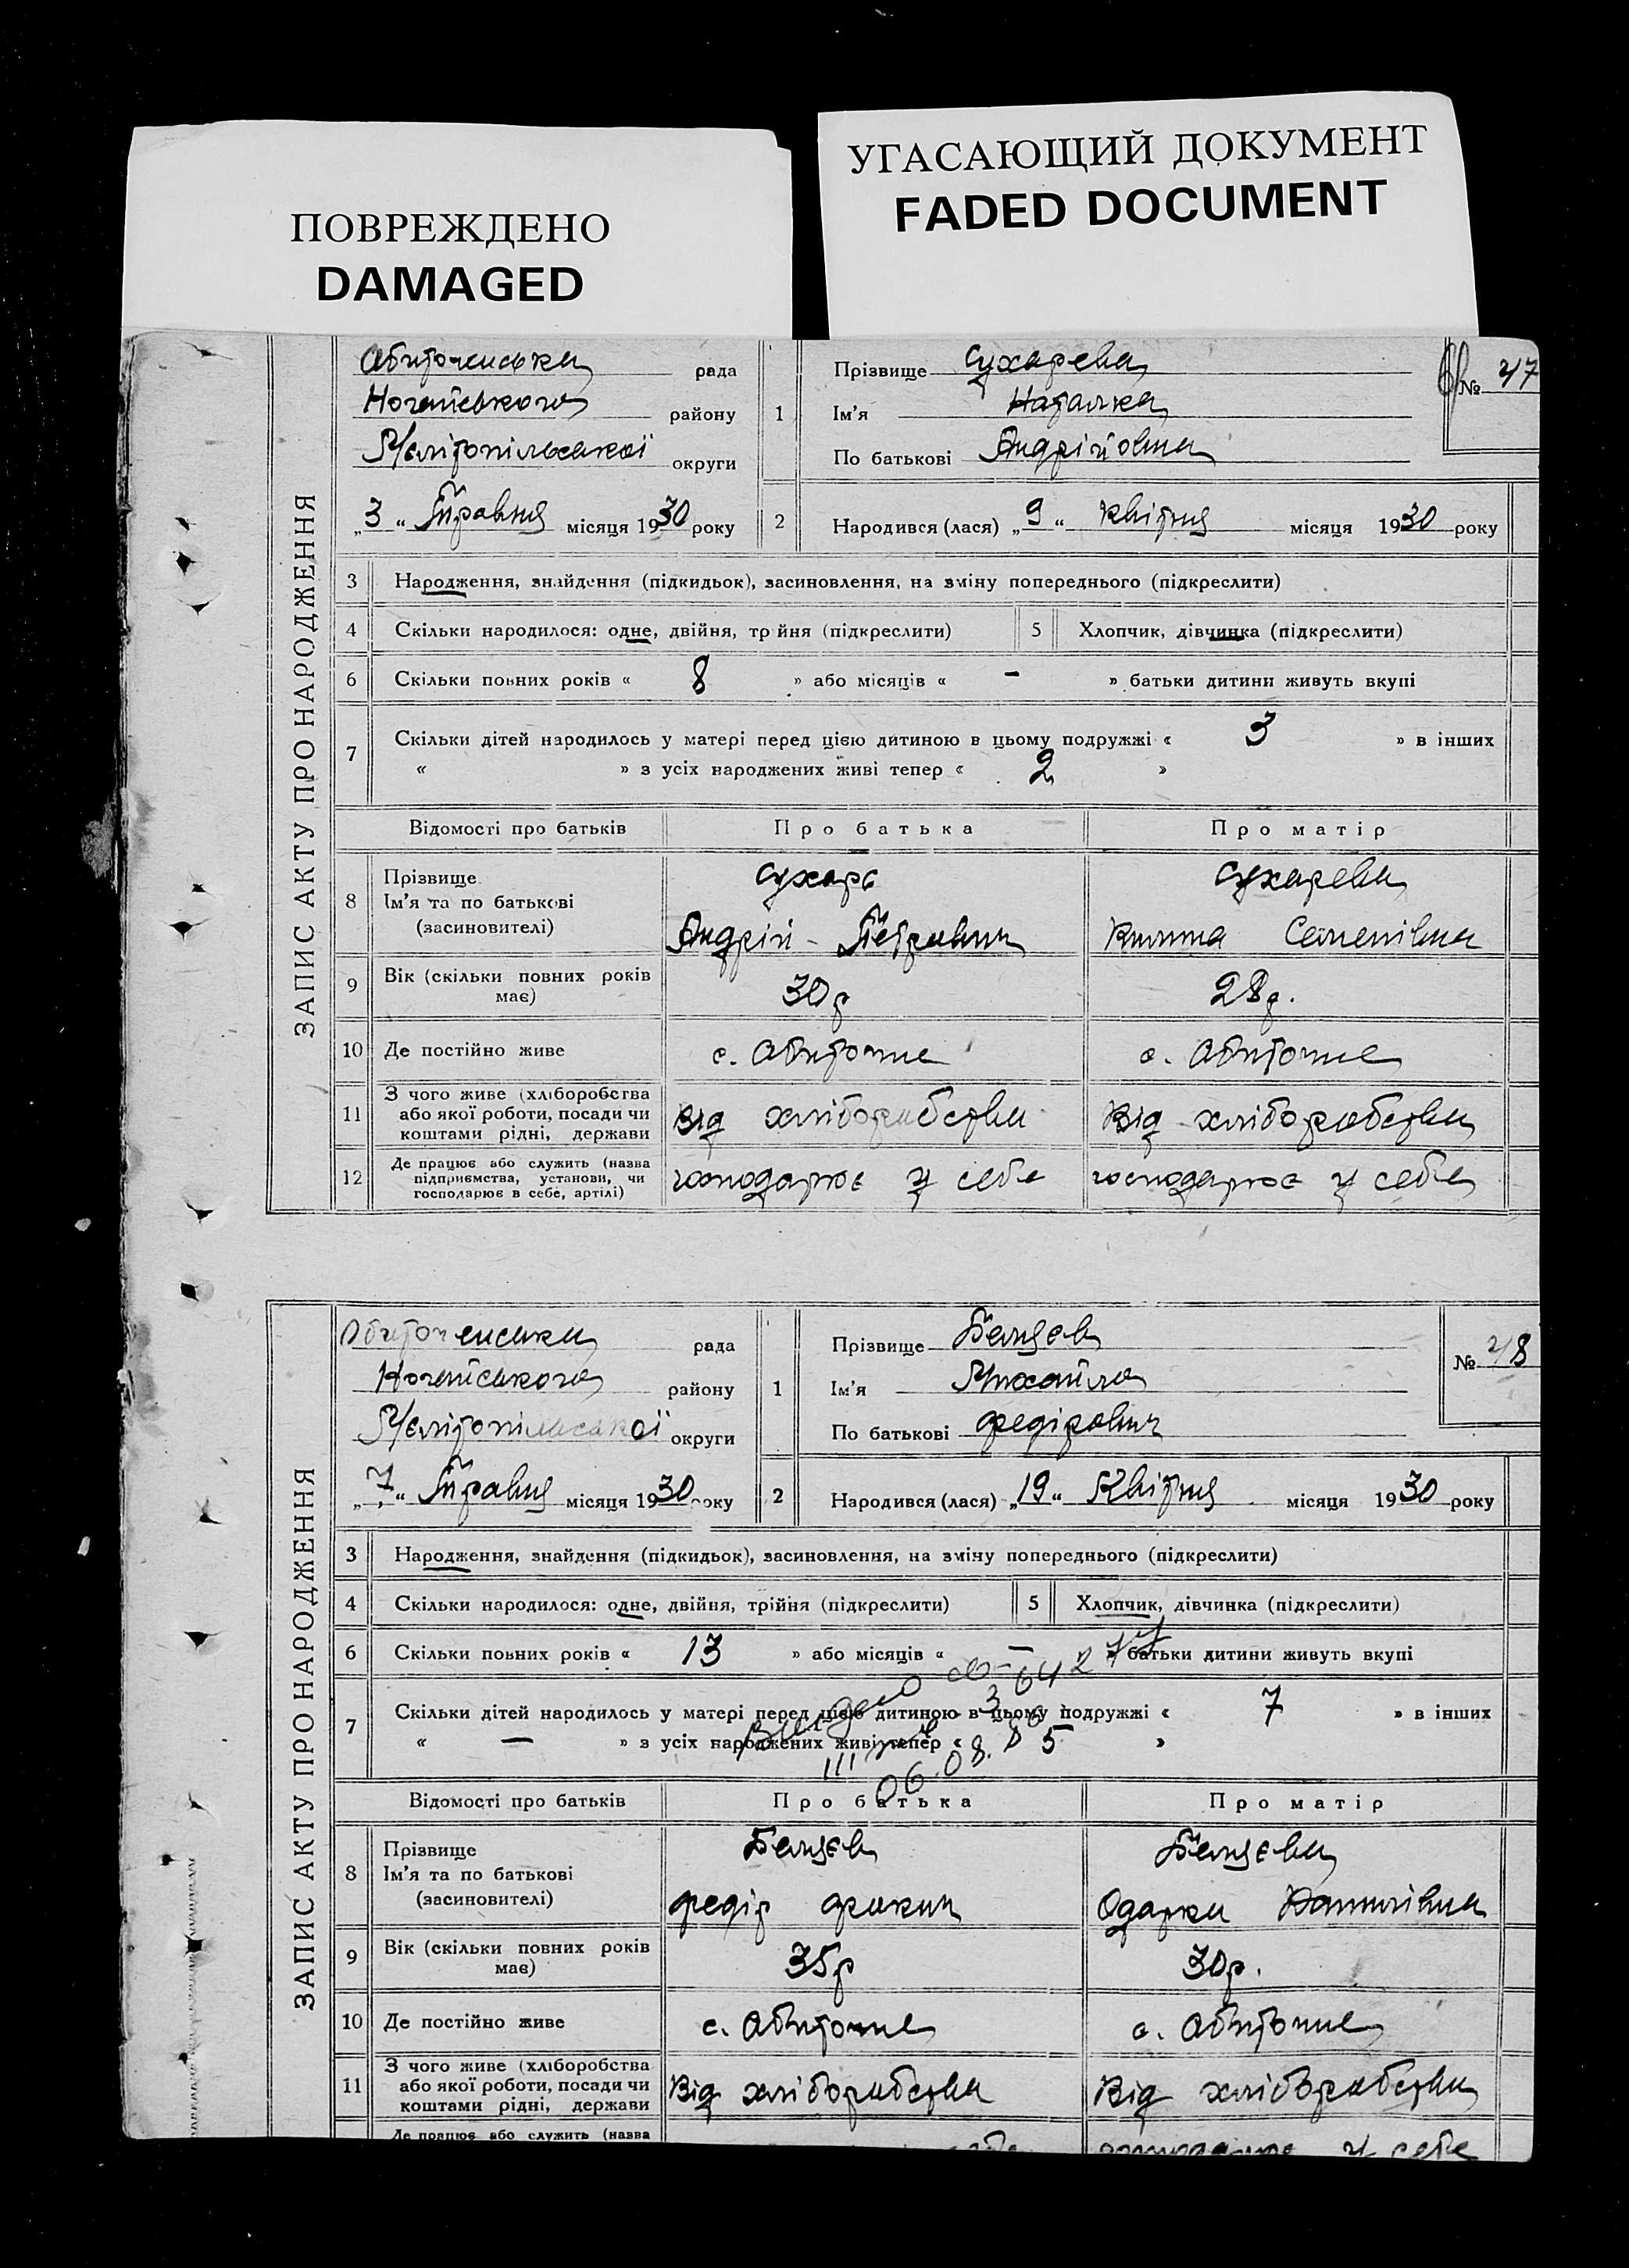 ПОВРЕЖДЕНО
DAMAGED
УГАСАЮЩИЙ ДОКУМЕНТ
FADED DOCUMENT
ЗАПИС АКТУ ПРО НАРОДЖЕННЯ
Обиточенська рада
Ногайського району
Меліто́пільської округи
„3“ Травня місяця 1930 року
1 Прізвище Сухарева
Ім'я Наталка
По батькові Андріївна
№ 47
2 Народився (лася) „9“ квітня місяця 1930 року
3 Народження, знайдення (підкидьок), засиновлення, на зміну попереднього (підкреслити)
4 Скільки народилося: одне, двійня, тр йня (підкреслити) 5 Хлопчик, дівчинка (підкреслити)
6 Скільки повних років « 8 » або місяців « – » батьки дитини живуть вкупі
7 Скільки дітей народилось у матері перед цією дитиною в цьому подружжі « 3 » в інших
« » з усіх народжених живі тепер « 2 »
Відомості про батьків Про батька Про матір
8 Прізвище Ім'я та по батькові (засновителі)
Сухарь Сухарева
Андрій - Петрович Семенівна
9 Вік (скільки повних років має) 30р 28р.
10 Де постійно живе с. Обиточне с. Обиточне
11 З чого живе (хліборобства
або якої роботи, посади чи
коштами рідні, держави
Від хліборобства Від хліборобства
12 Де працює або служить (назва
підприємства, установи, чи
господарює в себе, артілі)
господарює у себе господарює у себе
ЗАПИС АКТУ ПРО НАРОДЖЕННЯ
Обиточенська рада
Ногайського району
Мелітопільської округи
„7“ Травня місяця 1930 року
1 Прізвище
Ім'я Михайло
По батькові Федірович
№ 48
2 Народився (лася) „19“ Квітня місяця 1930 року
3 Народження, знайдення (підкидьок), засиновлення, на зміну попереднього (підкреслити)
4 Скільки народилося: одне, двійня, трійня (підкреслити) 5 Хлопчик, дівчинка (підкреслити)
6 Скільки повних років « 13 » або місяців « – » батьки дитини живуть вкупі
7 Скільки дітей народилось у матері перед цією дитиною в цьому подружжі « 7 » в інших
« – » з усіх народжених живі тепер « 5 »
06.08.
Відомості про батьків Про батька Про матір
8 Прізвище
Ім'я та по батькові
(засиновителі)
Федір Одарка Данилівна
9 Вік (скільки повних років має) 35р 30р.
10 Де постійно живе с. Обиточне с. Обиточне
11 З чого живе (хліборобства
або якої роботи, посади чи
коштами рідні, держави
Від хліборобства Від хліборобства
Де працює або служить (назва
господарює у себе